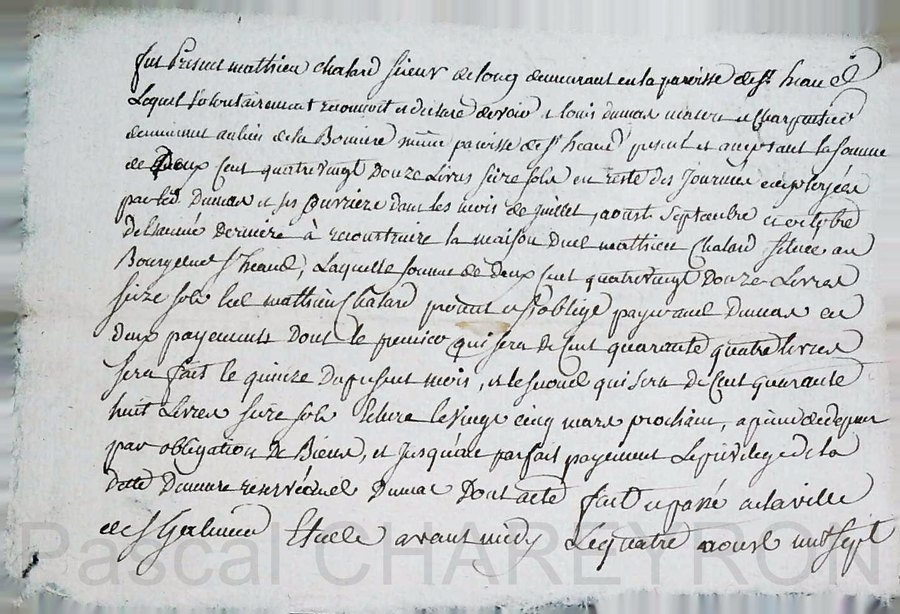 fut Présent mathieu chalard sieur de long demeurant en la paroisse de st heand
Lequel volontairement reconnoit et declare devoir a louis dumas maitre charpentier
demeurant au lieu de la Bouiere même paroisse de st heand présent et acceptant la somme
de Deux Cent quatrevingt Douze Livres seize sols en reste des Journées employées
par led Dumas et ses ouvriers dans les mois de juillet, aoust Septembre et octobre
de l'année Derniere à reconstruire la maison dud mathieu Chalard située au
Bourg dud st heand, Laquelle somme de deux Cent quatrevingt Douze Livres
seize sols led mathieu Chalard promet et s'oblige payer aud Dumas en
deux payements Dont le premier qui sera de Cent quarante quatre livres
sera fait le quinze du présent mois, et le second qui sera de Cent quarante
huit Livres seize sols le vingt cinq mars prochain, a peine de depens
par obligation de Biens, et jusqu'au parfait payement Le privilege de la
datte Demeure reservé aud Dumas Dont acte fait et passé en la ville
de st Galmier Etude avant midy Le quatre aoust mil sept
Pascal CHAREYRON